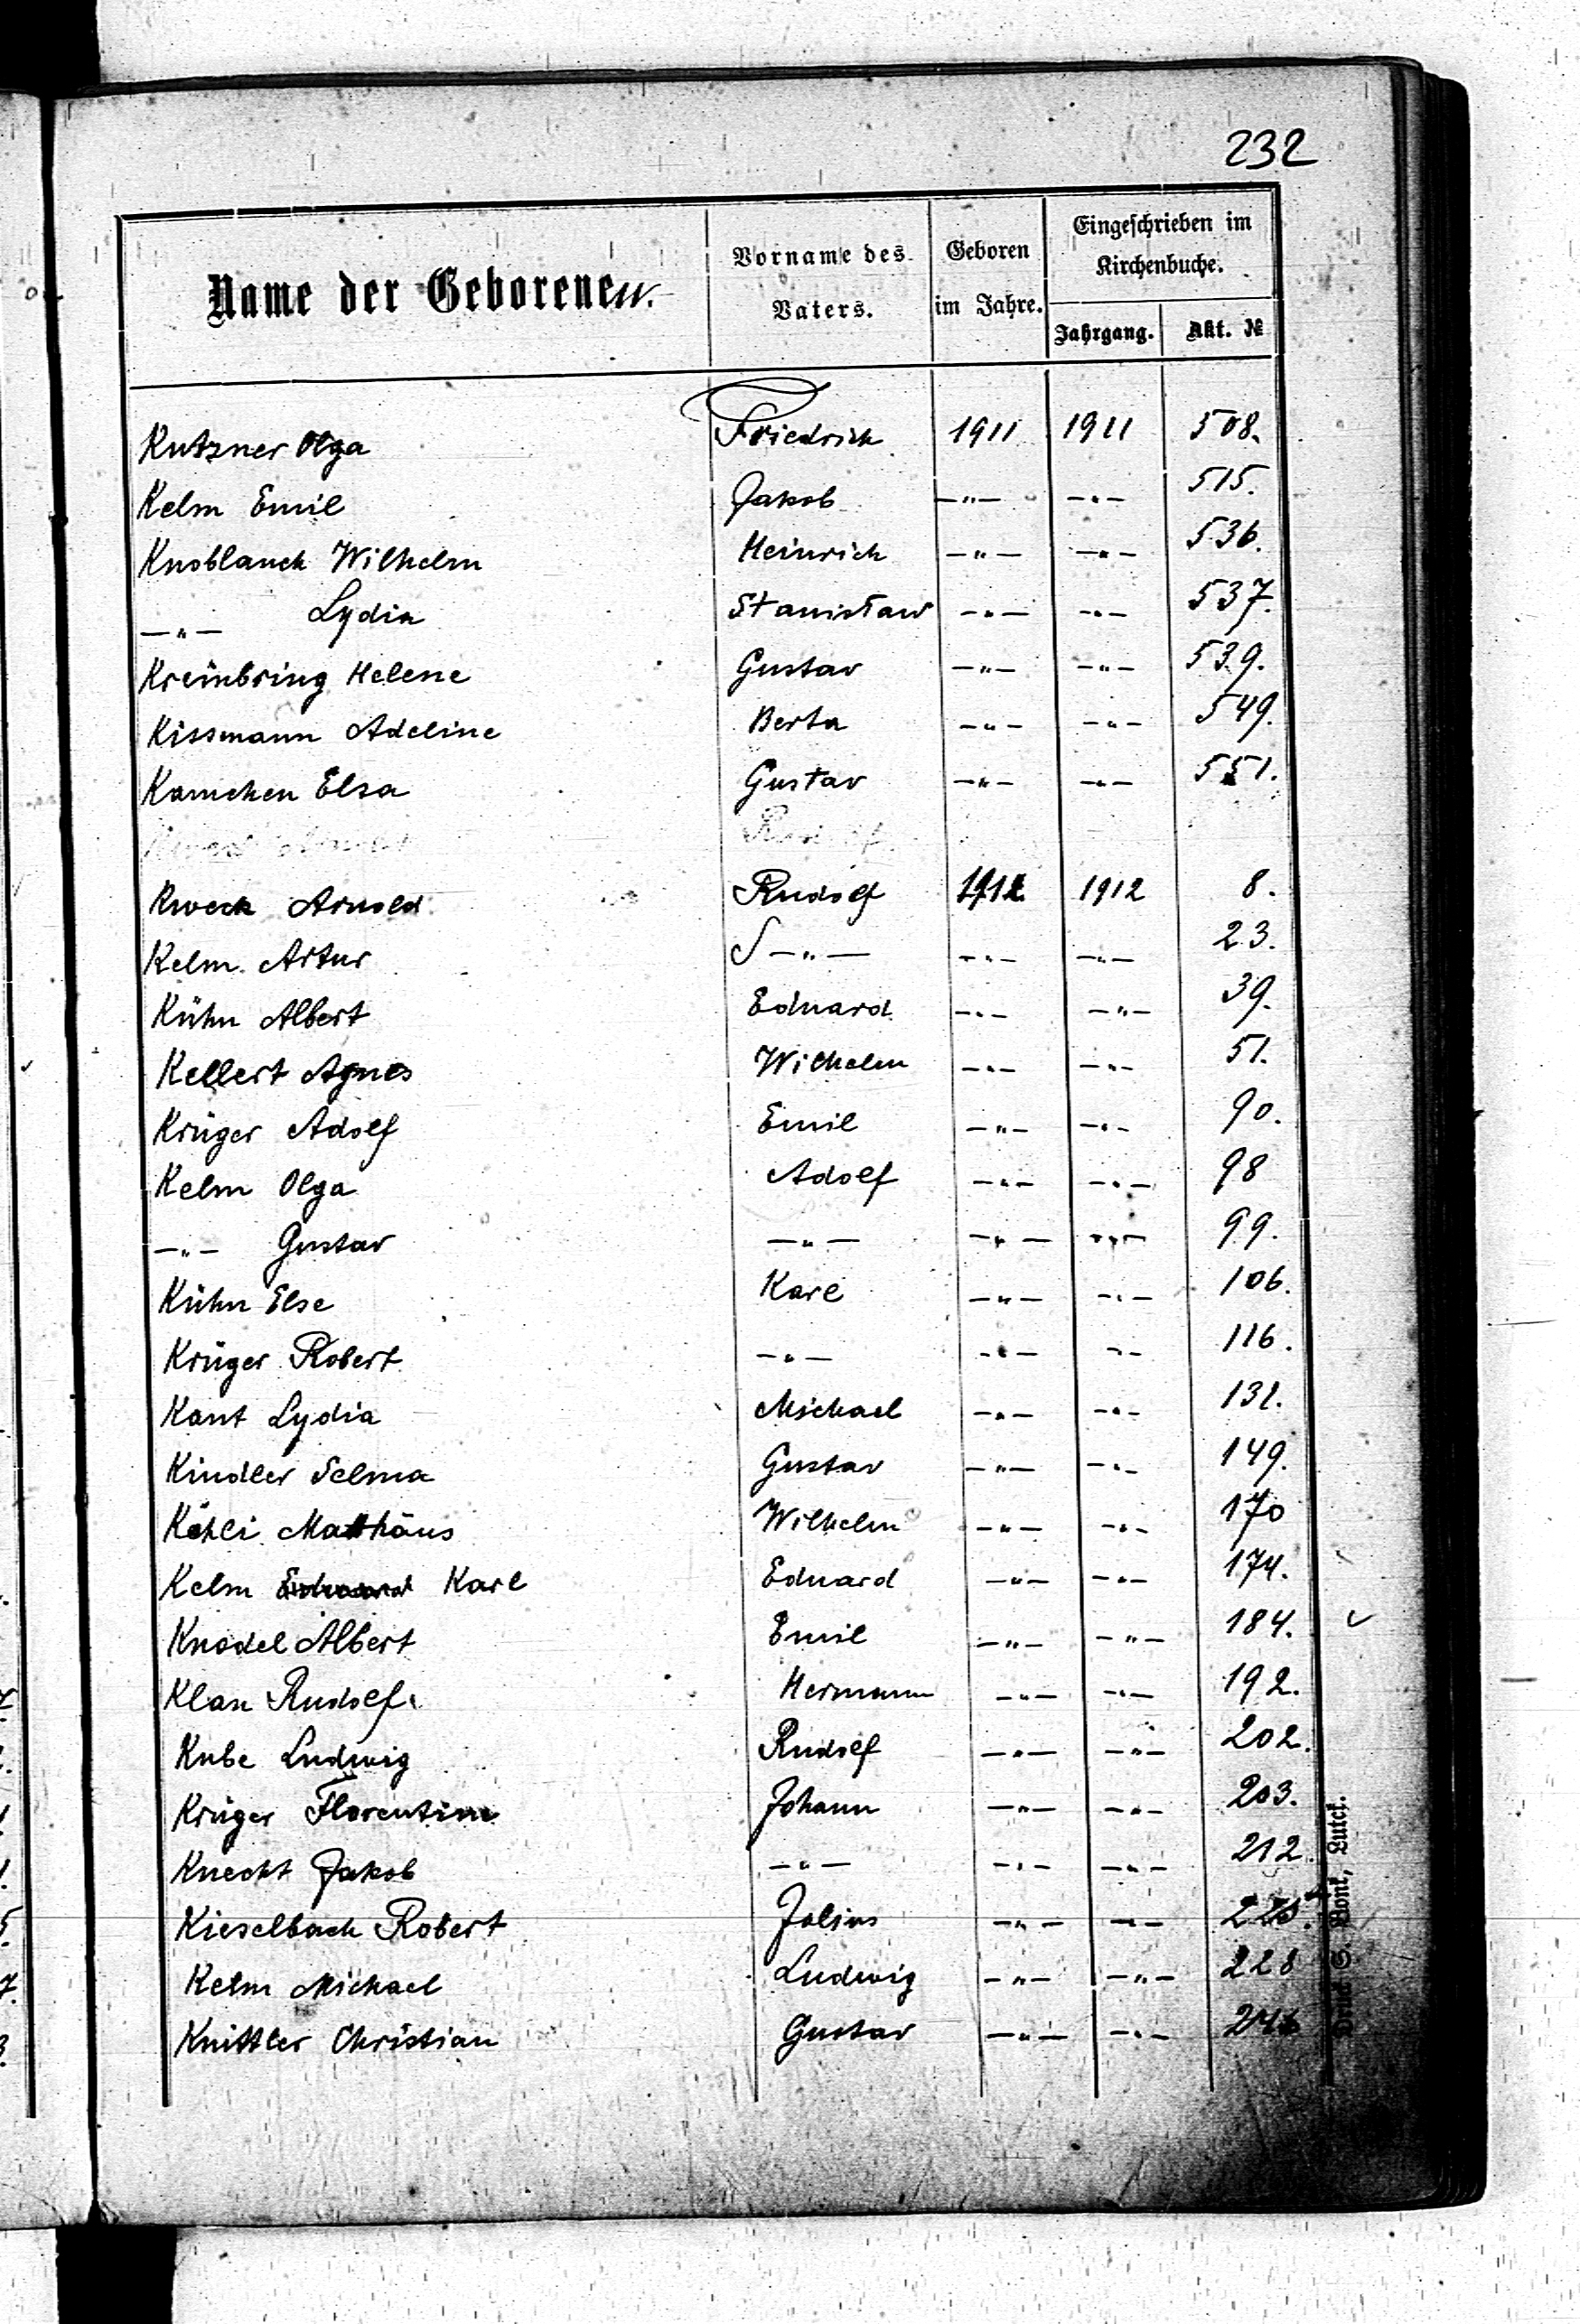 232
Name der Geborenen.
Vorname des Vaters.
Geboren im Jahre.
Eingeschrieben im Kirchenbuche.
Jahrgang. Akt. №
Kutzner Olga Friedrich 1911 1911 508.
Kelm Emil Jakob —"— —"— 515.
Knoblauch Wilhelm Heinrich —"— —"— 536.
—"— Lydia Stanisław —"— —"— 537.
Kreimbring Helene Gustav —"— —"— 539.
Kissmann Adeline Berta —"— —"— 549.
Kamchen Elsa Gustav —"— —"— 551.
Kweck Arnold Rudolf 1912 1912 8.
Kelm Artur —"— —"— —"— 23.
Kühn Albert Eduard —"— —"— 39.
Kellert Agnes Wilhelm —"— —"— 51.
Krüger Adolf Emil —"— —"— 90.
Kelm Olga Adolf —"— —"— 98
—"— Gustav —"— —"— —"— 99.
Kühn Else Karl —"— —"— 106.
Krüger Robert —"— —"— —"— 116.
Kant Lydia Michael —"— —"— 131.
Kindler Selma Gustav —"— —"— 149.
Köhli Matthäus Wilhelm —"— —"— 170
Kelm Eduard Karl Eduard —"— —"— 174.
Knodel Albert Emil —"— —"— 184.
Klan Rudolf Hermann —"— —"— 192.
Kube Ludwig Rudolf —"— —"— 202.
Krüger Florentine Johann —"— —"— 203.
Knecht Jakob —"— —"— —"— 212.
Kieselbach Robert Julius —"— —"—
Kelm Michael Ludwig —"— —"— 228
Knittler Christian Gustav —"— —"— 246
Luck.